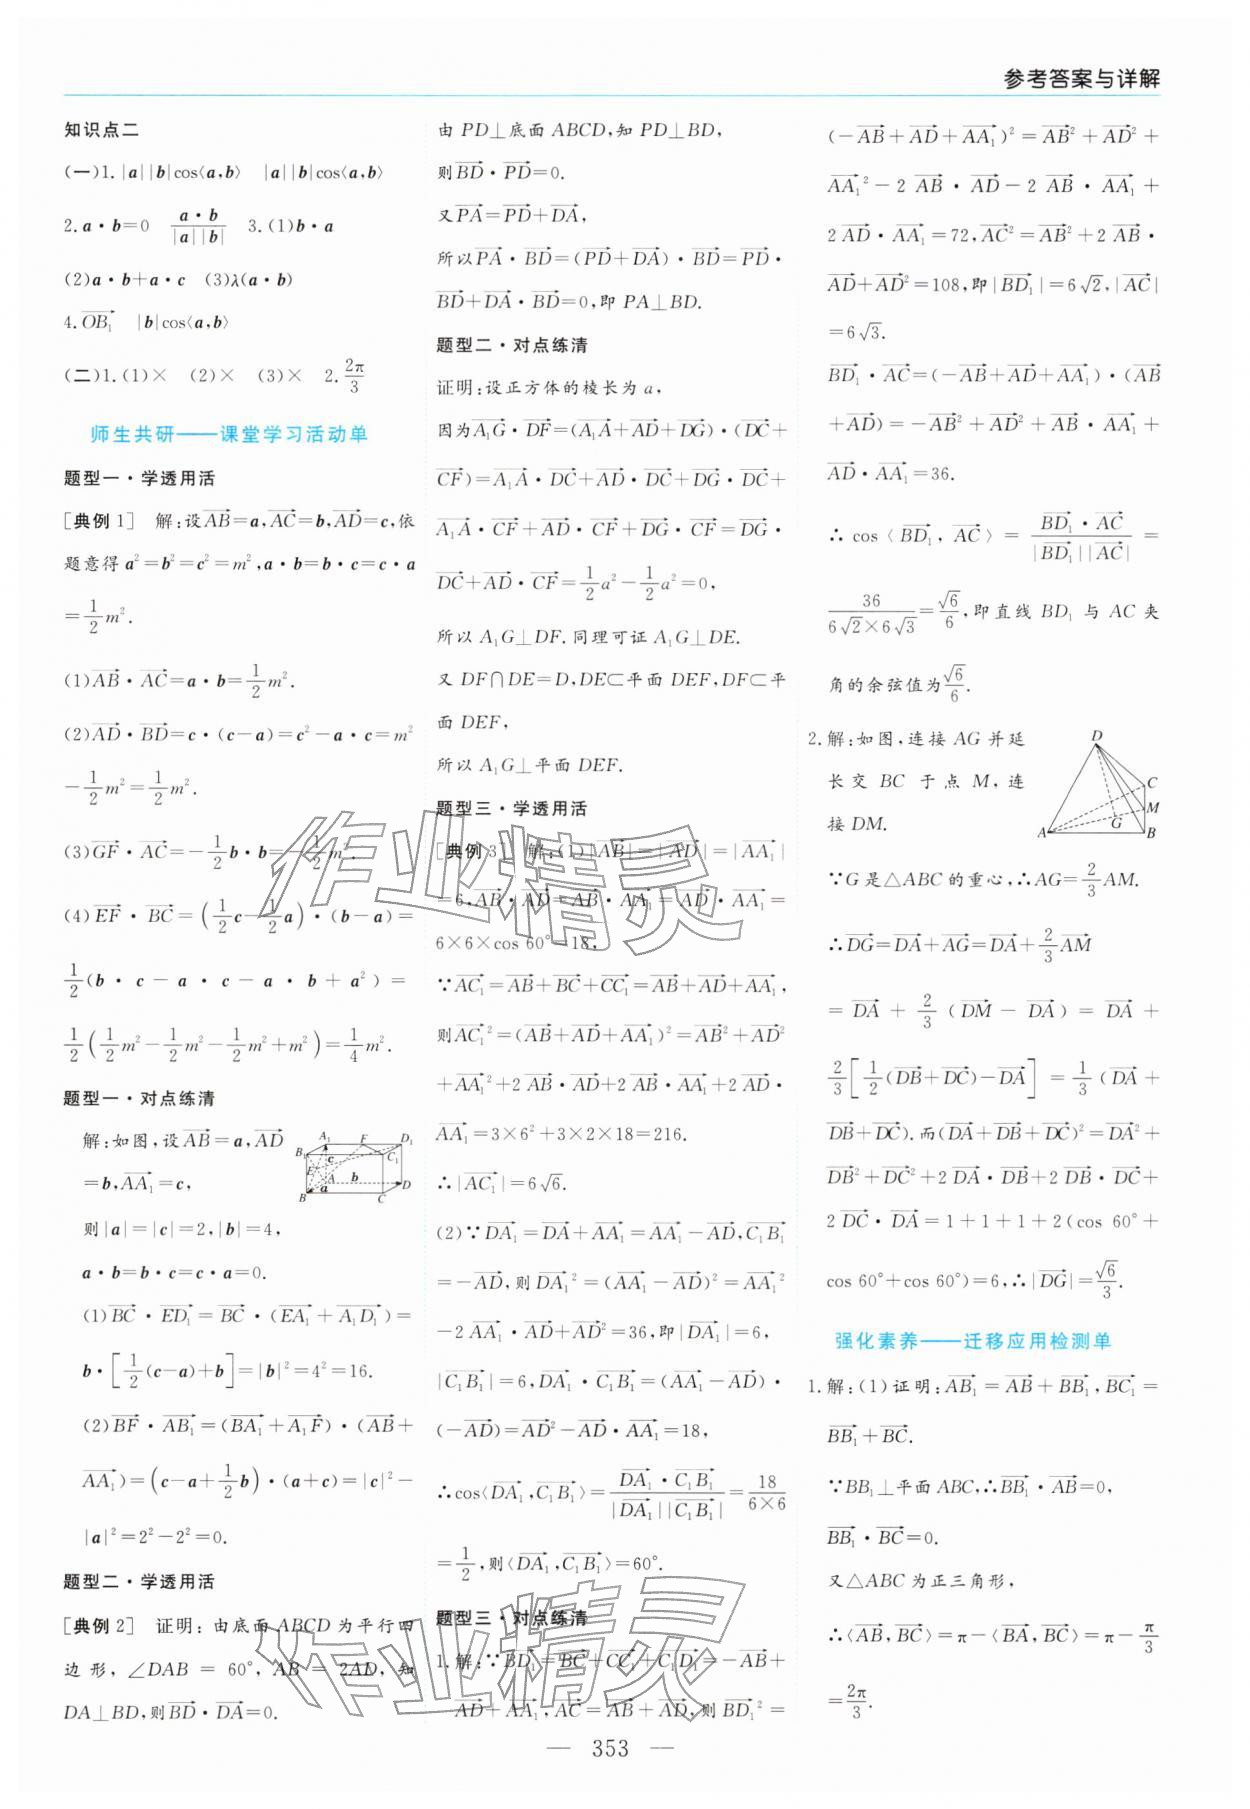 参考答案与详解
知识点二
(一)1.|a||b|cos⟨a,b⟩ |a||b|cos⟨a,b⟩
2.a·b=0 a·b/(|a||b|) 3.(1)b·a
(2)a·b+a·c (3)λ(a·b)
4.OB₁→ |b|cos⟨a,b⟩
(二)1.(1)× (2)× (3)× 2.2π/3
师生共研——课堂学习活动单
题型一·学透用活
[典例1] 解:设AB→=a,AC→=b,AD→=c,依
题意得a²=b²=c²=m²,a·b=b·c=c·a
=1/2 m².
(1)AB→·AC→=a·b=1/2 m².
(2)AD→·BD→=c·(c-a)=c²-a·c=m²
-1/2 m²=1/2 m².
(3)GF→·AC→=-1/2 b·b=-1/2 m².
(4)EF→·BC→=(1/2 c-1/2 a)·(b-a)=
1/2(b·c-a·c-a·b+a²)=
1/2(1/2 m²-1/2 m²-1/2 m²+m²)=1/4 m².
题型一·对点练清
解:如图,设AB→=a,AD→
=b,AA₁→=c,
A₁ F D₁ B₁ C₁ E c A b D a B C
则|a|=|c|=2,|b|=4,
a·b=b·c=c·a=0.
(1)BC→·ED₁→=BC→·(EA₁→+A₁D₁→)=
b·[1/2(c-a)+b]=|b|²=4²=16.
(2)BF→·AB₁→=(BA₁→+A₁F→)·(AB→+
AA₁→)=(c-a+1/2 b)·(a+c)=|c|²-
|a|²=2²-2²=0.
题型二·学透用活
[典例2] 证明:由底面ABCD为平行四
边形,∠DAB=60°,AB=2AD,知
DA⊥BD,则BD→·DA→=0.
由PD⊥底面ABCD,知PD⊥BD,
则BD→·PD→=0.
又PA→=PD→+DA→,
所以PA→·BD→=(PD→+DA→)·BD→=PD→·
BD→+DA→·BD→=0,即PA⊥BD.
题型二·对点练清
证明:设正方体的棱长为a,
因为A₁G→·DF→=(A₁A→+AD→+DG→)·(DC→+
CF→)=A₁A→·DC→+AD→·DC→+DG→·DC→+
A₁A→·CF→+AD→·CF→+DG→·CF→=DG→·
DC→+AD→·CF→=1/2 a²-1/2 a²=0,
所以A₁G⊥DF.同理可证A₁G⊥DE.
又DF∩DE=D,DE⊂平面DEF,DF⊂平
面DEF,
所以A₁G⊥平面DEF.
题型三·学透用活
[典例3] 解:(1)|AB→|=|AD→|=|AA₁→|
=6,AB→·AD→=AB→·AA₁→=AD→·AA₁→=
6×6×cos 60°=18,
∵AC₁→=AB→+BC→+CC₁→=AB→+AD→+AA₁→,
则AC₁→²=(AB→+AD→+AA₁→)²=AB→²+AD→²
+AA₁→²+2AB→·AD→+2AB→·AA₁→+2AD→·
AA₁→=3×6²+3×2×18=216.
∴|AC₁→|=6√6.
(2)∵DA₁→=DA→+AA₁→=AA₁→-AD→,C₁B₁→
=-AD→,则DA₁→²=(AA₁→-AD→)²=AA₁→²
-2AA₁→·AD→+AD→²=36,即|DA₁→|=6,
|C₁B₁→|=6,DA₁→·C₁B₁→=(AA₁→-AD→)·
(-AD→)=AD→²-AD→·AA₁→=18,
∴cos⟨DA₁→,C₁B₁→⟩=DA₁→·C₁B₁→/(|DA₁→||C₁B₁→|)=18/(6×6)
=1/2,则⟨DA₁→,C₁B₁→⟩=60°.
题型三·对点练清
1.解:∵BD₁→=BC→+CC₁→+C₁D₁→=-AB→+
AD→+AA₁→,AC→=AB→+AD→,则BD₁→²=
(-AB→+AD→+AA₁→)²=AB→²+AD→²+
AA₁→²-2AB→·AD→-2AB→·AA₁→+
2AD→·AA₁→=72,AC→²=AB→²+2AB→·
AD→+AD→²=108,即|BD₁→|=6√2,|AC→|
=6√3.
BD₁→·AC→=(-AB→+AD→+AA₁→)·(AB→
+AD→)=-AB→²+AD→²+AB→·AA₁→+
AD→·AA₁→=36.
∴cos⟨BD₁→,AC→⟩=BD₁→·AC→/(|BD₁→||AC→|)=
36/(6√2×6√3)=√6/6,即直线BD₁与AC夹
角的余弦值为√6/6.
2.解:如图,连接AG并延
长交BC于点M,连
接DM.
D C M A G B
∵G是△ABC的重心,∴AG=2/3 AM.
∴DG→=DA→+AG→=DA→+2/3 AM→
=DA→+2/3(DM→-DA→)=DA→+
2/3[1/2(DB→+DC→)-DA→]=1/3(DA→+
DB→+DC→).而(DA→+DB→+DC→)²=DA→²+
DB→²+DC→²+2DA→·DB→+2DB→·DC→+
2DC→·DA→=1+1+1+2(cos 60°+
cos 60°+cos 60°)=6,∴|DG→|=√6/3.
强化素养——迁移应用检测单
1.解:(1)证明:AB₁→=AB→+BB₁→,BC₁→=
BB₁→+BC→.
∵BB₁⊥平面ABC,∴BB₁→·AB→=0,
BB₁→·BC→=0.
又△ABC为正三角形,
∴⟨AB→,BC→⟩=π-⟨BA→,BC→⟩=π-π/3
=2π/3.
作业精灵
作业精灵
— 353 —